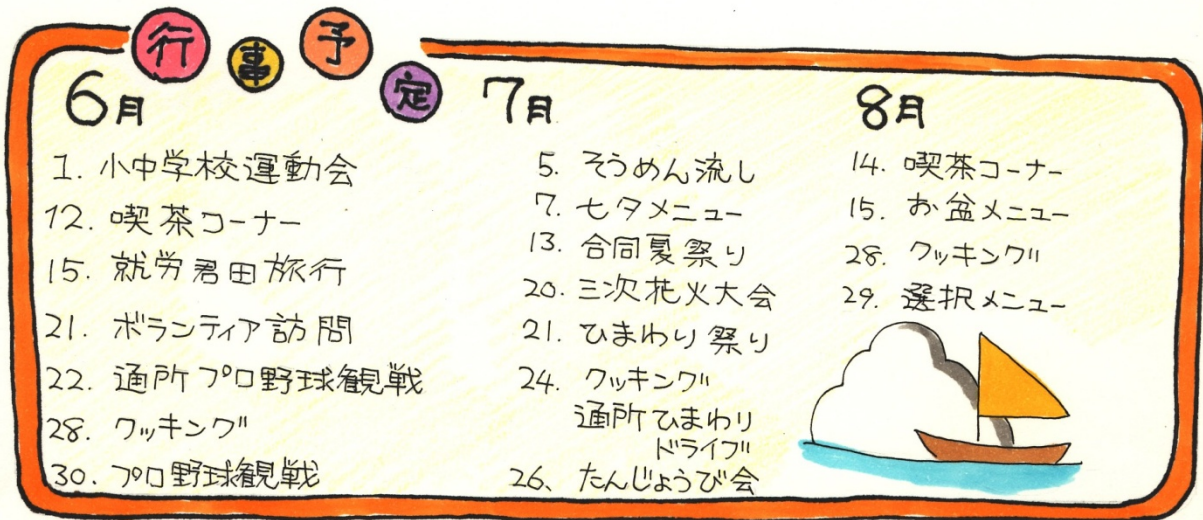 行事予定
6月
1. 小中学校運動会
12. 喫茶コーナー
15. 就労君田旅行
21. ボランティア訪問
22. 通所プロ野球観戦
28. クッキング
30. プロ野球観戦
7月
5. そうめん流し
7. 七夕メニュー
13. 合同夏祭り
20. 三次花火大会
21. ひまわり祭り
24. クッキング
通所ひまわり
ドライブ
26. たんじょうび会
8月
14. 喫茶コーナー
15. お盆メニュー
28. クッキング
29. 選択メニュー